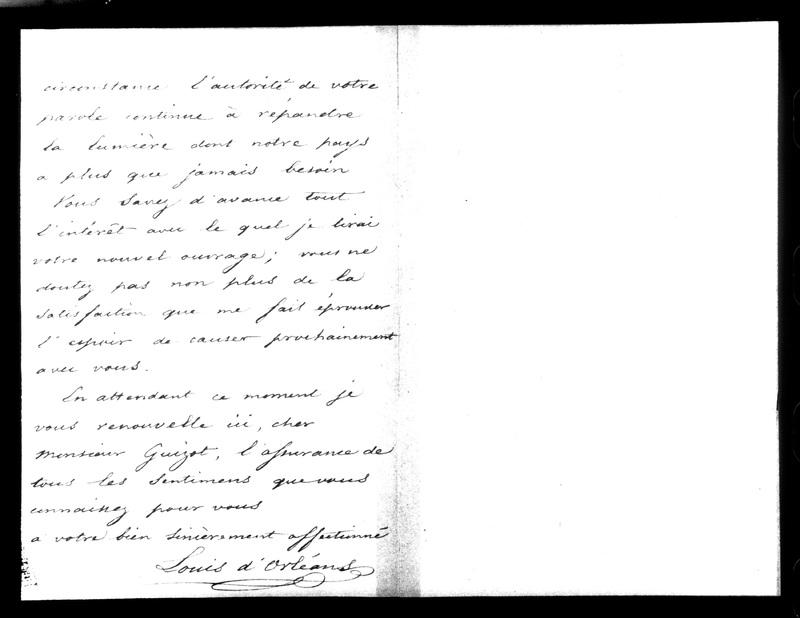 circonstance l'autorité de votre
parole continue à répandre
la lumière dont notre pays
a plus que jamais besoin
Vous savez d'avance tout
l'intérêt avec le quel je lirai
votre nouvel ouvrage; vous ne
doutez pas non plus de la
satisfaction que me fait éprouver
l'espoir de causer prochainement
avec vous.
En attendant ce moment je
vous renouvelle ici, cher
Monsieur Guizot, l'assurance de
tous les sentimens que vous
connaissez pour vous
a votre bien sincèrement affectionné
Louis d'Orléans